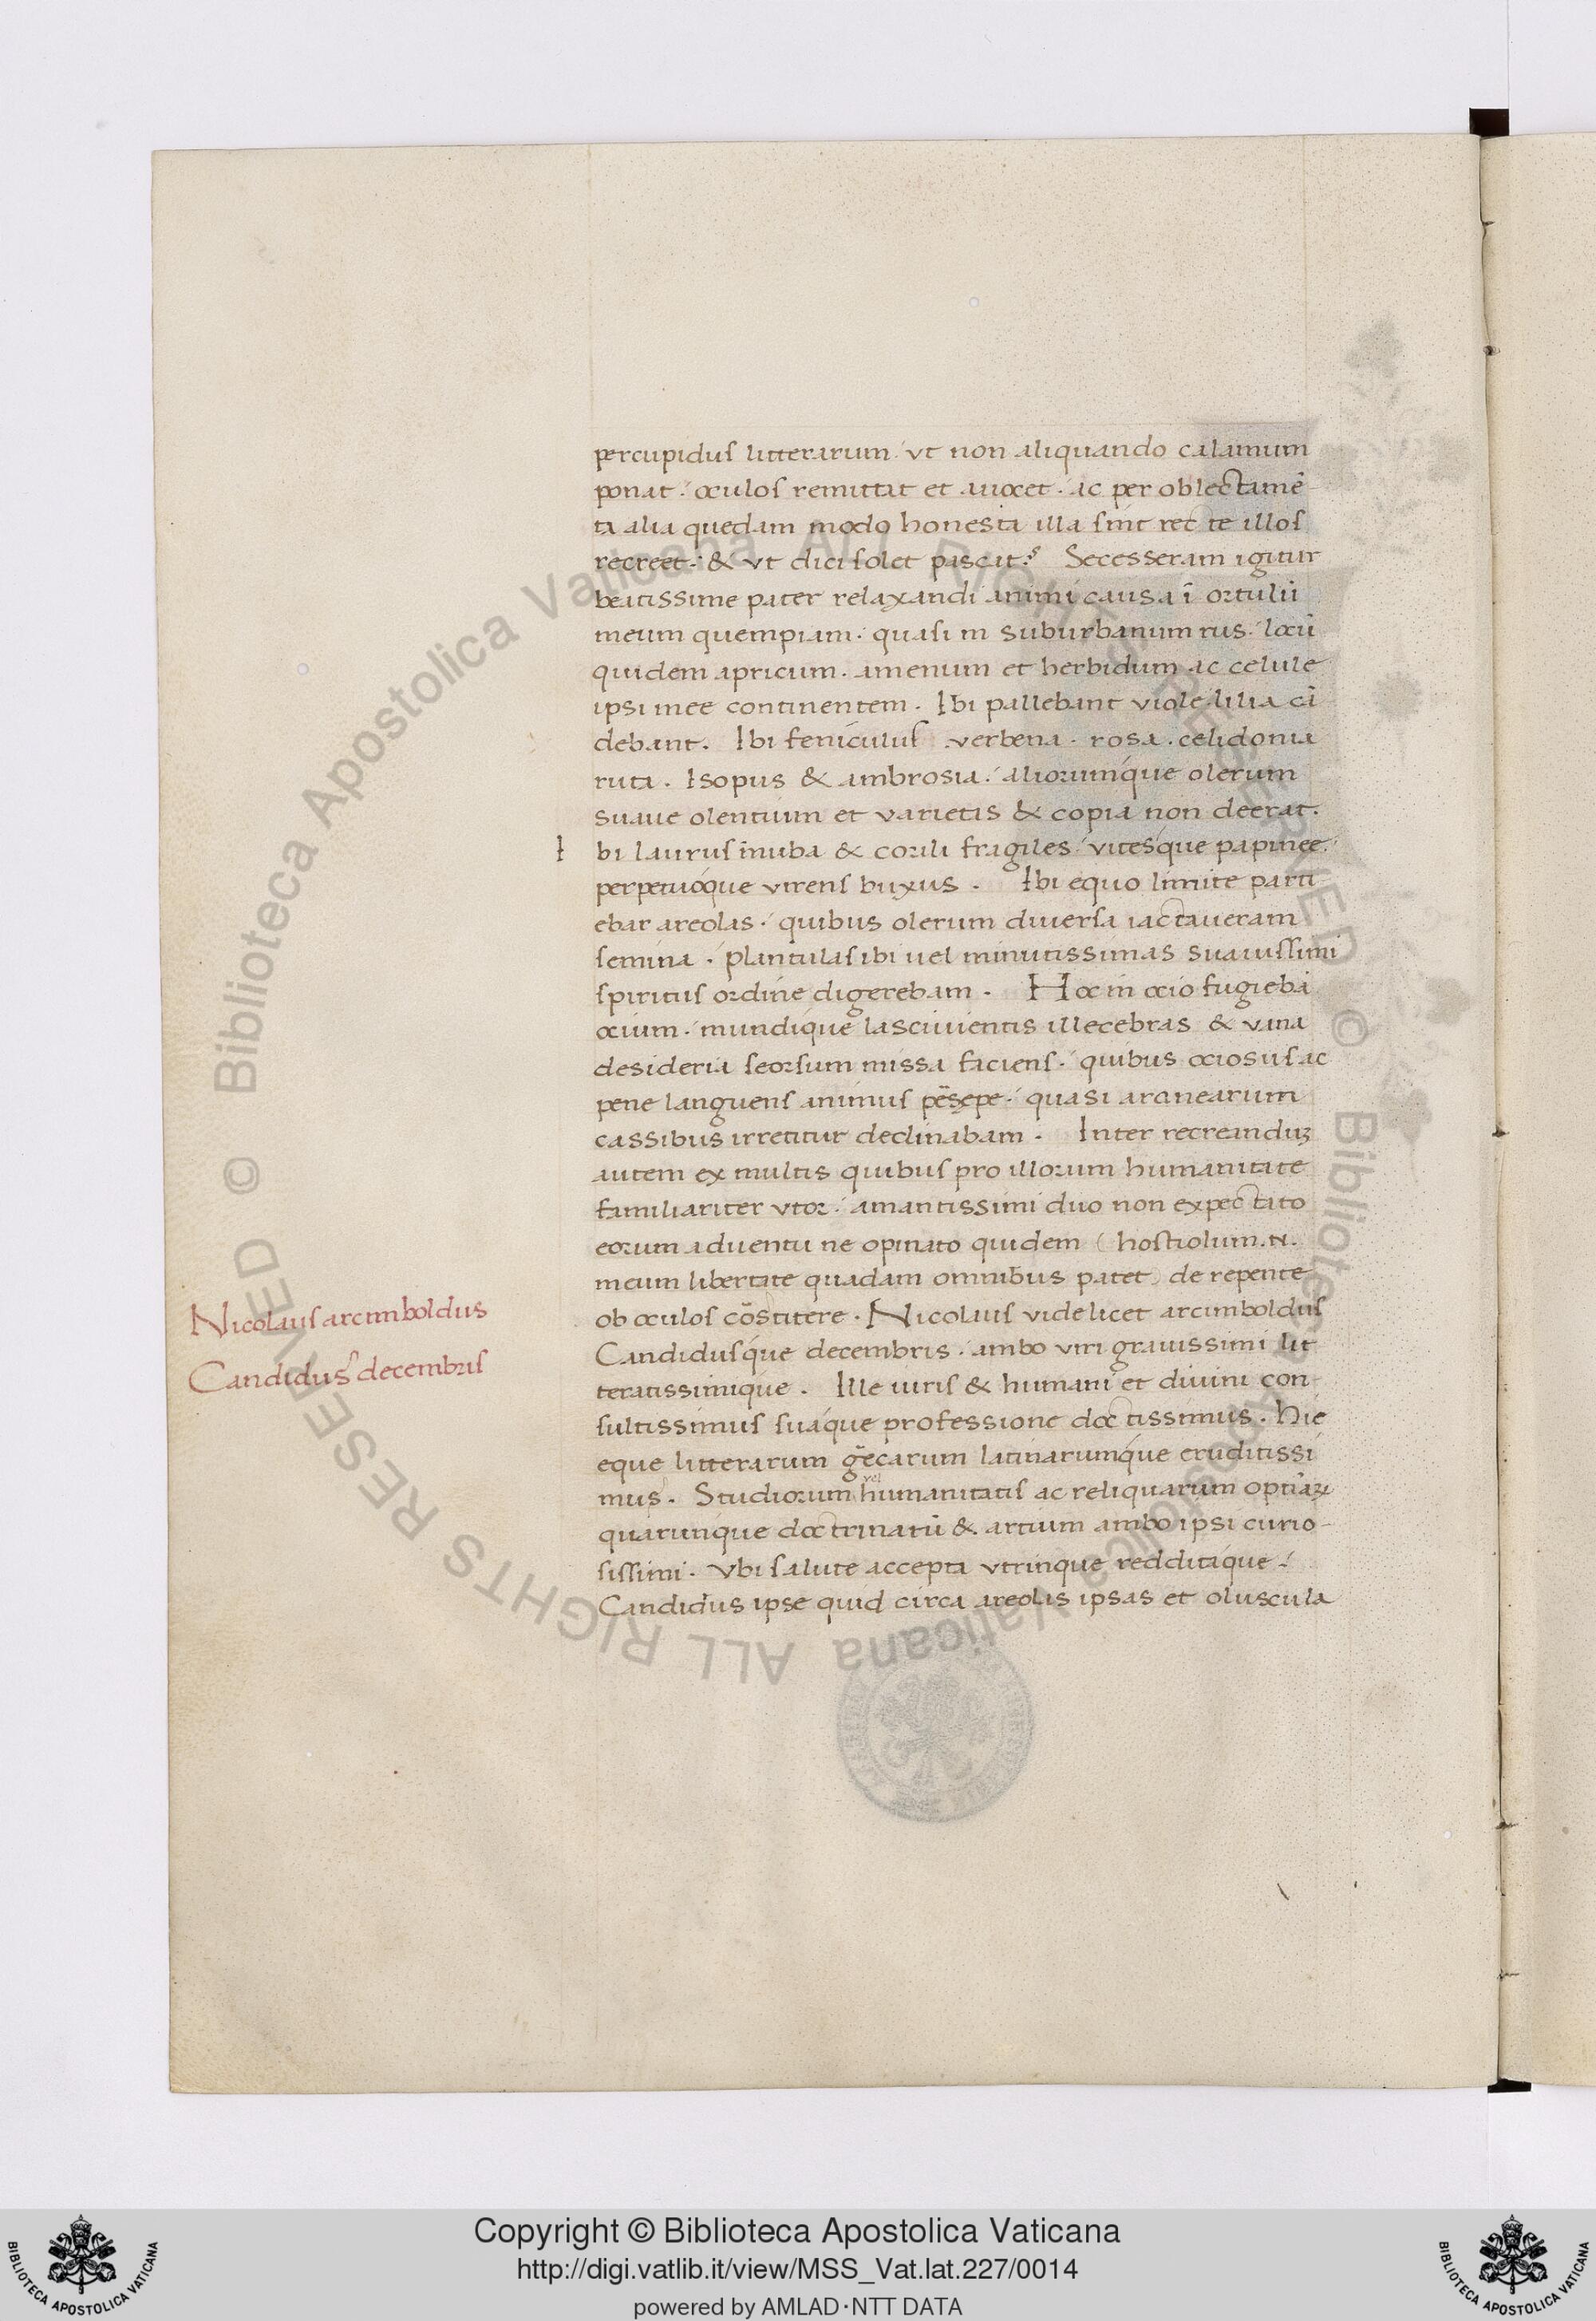 percupidus litterarum ut non aliquando calamum
ponat. oculos remittat et auocet. ac per oblectamē-
ta alia quedam modo honesta illa sint recte illos
recreet. & vt dici solet pascat? Secesseram igitur
beatissime pater relaxandi animi causa ī ortulū
meum quempiam. quasi in suburbanum rus. locū
quidem apricum. amenum et herbidum ac celule
ipsi mee continentem. Ibi pallebant viole. lilia cā
debant. Ibi feniculus. verbena. rosa. celidonia
ruta. Isopus & ambrosia. aliorumque olerum
suaue olentium et varietas & copia non deerat.
I bi laurus innuba & corili fragiles vitesque papinee.
perpetuoque virens buxus. Ibi equo limite parti
ebar areolas. quibus olerum diuersa iactaueram
semina. plantulas ibi uel minutissimas suauissimi
spiritus ordine digerebam. Hoc in ocio fugiebā
ocium. mundique lasciuientis illecebras & vana
desideria seorsum missa faciens. quibus ociosus ac
pene languens animus persepe. quasi aranearum
cassibus irretitur declinabam. Inter recreanduʒ
autem ex multis quibus pro illorum humanitate
familiariter vtor. amantissimi duo non expectato
eorum aduentu ne opinato quidem ( hostiolum .n.
meum libertate quadam omnibus patet) de repente
ob oculos cōstitere. Nicolaus videlicet arcimboldus
Candidusque decembris. ambo viri grauissimi lit
teratissimique. Ille iuris & humani et diuini con-
sultissimus suaque professione doctissimus. Hic
eque litterarum grecarum latinarumque eruditissi
mus. Studiorum vel humanitatis ac reliquarum optīaꝝ
quarunque doctrinarū & artium ambo ipsi curio-
sissimi. Vbi salute accepta vtrinque redditaque.
Candidus ipse quid circa areolas ipsas et oluscula
Nicolaus arcimboldus
Candidus decembris
Copyright © Biblioteca Apostolica Vaticana
http://digi.vatlib.it/view/MSS_Vat.lat.227/0014
powered by AMLAD·NTT DATA
BIBLIOTECA APOSTOLICA VATICANA
BIBLIOTECA APOSTOLICA VATICANA
© Biblioteca Apostolica Vaticana ALL RIGHTS RESERVED © Biblioteca Apostolica Vaticana ALL RIGHTS RESERVED